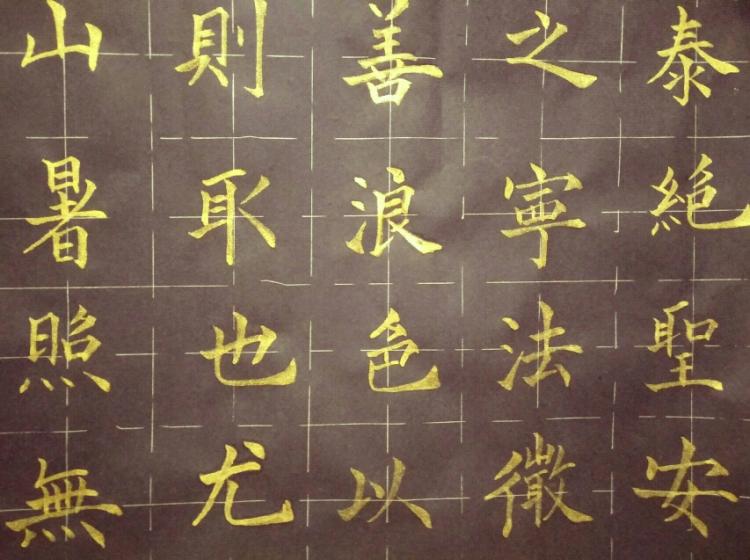 泰絕聖安
之寧法徵
善浪色以
則耴也尤
山暑照無